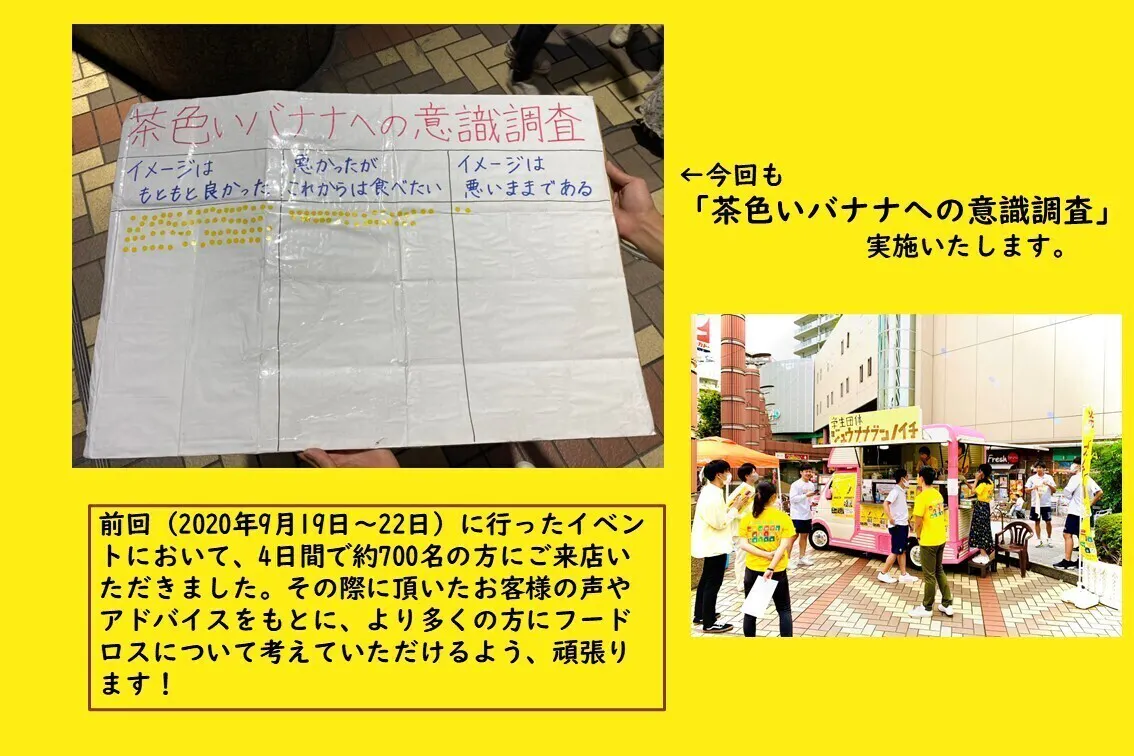 茶色いバナナへの意識調査
イメージは
もともと良かった
悪かったが
これからは食べたい
イメージは
悪いままである
←今回も
「茶色いバナナへの意識調査」
実施いたします。
学生団体
ジュウナナブンノイチ
Fresh
前回（2020年9月19日～22日）に行ったイベン
トにおいて、4日間で約700名の方にご来店い
ただきました。その際に頂いたお客様の声や
アドバイスをもとに、より多くの方にフード
ロスについて考えていただけるよう、頑張り
ます！